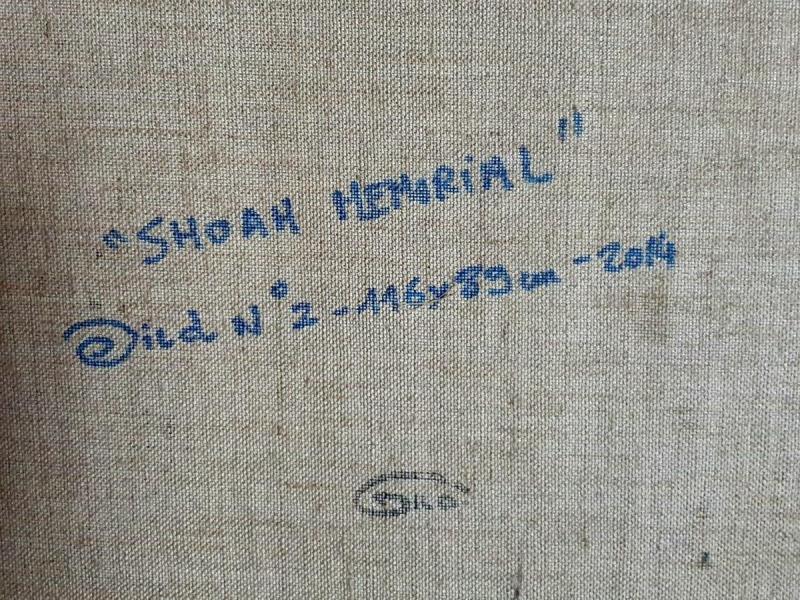 "SHOAH MEMORIAL"
Sild N°2 - 116x89cm - 2014